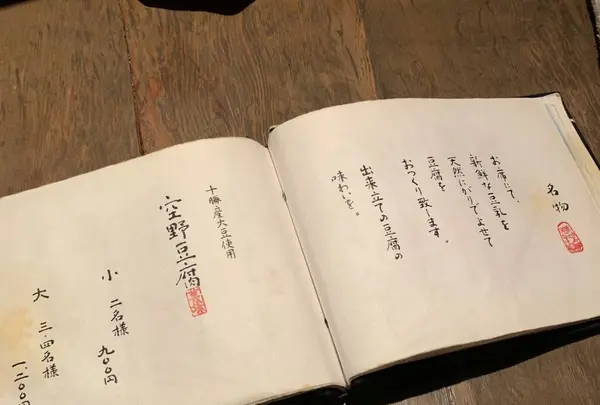 名物
お席にて、
新鮮な豆乳を
天然にがりでよせて
豆腐を
おつくり致します。
出来立ての豆腐の
味わいを。
十勝産大豆使用
空野豆腐
小 二名様 九〇〇円
大 三・四名様 一、二〇〇円